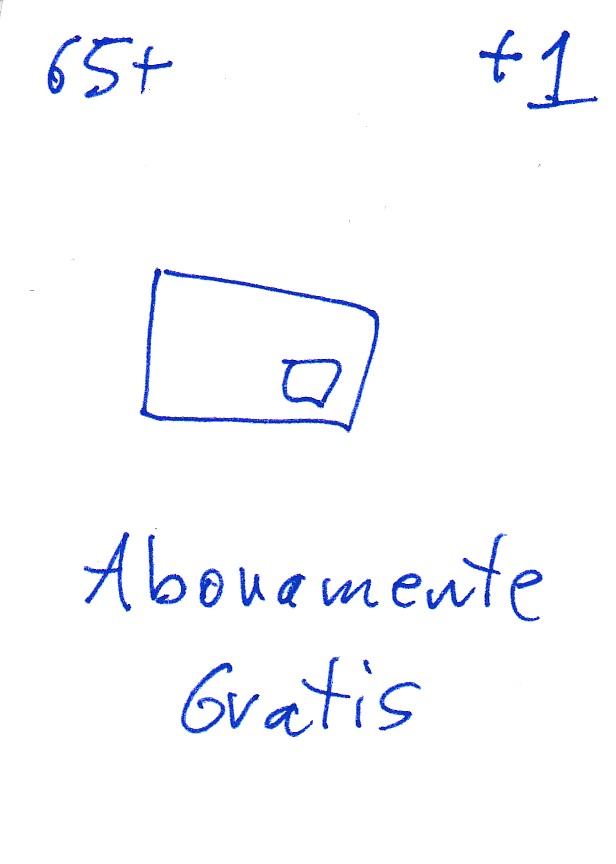 65+ +1
Abonamente
Gratis